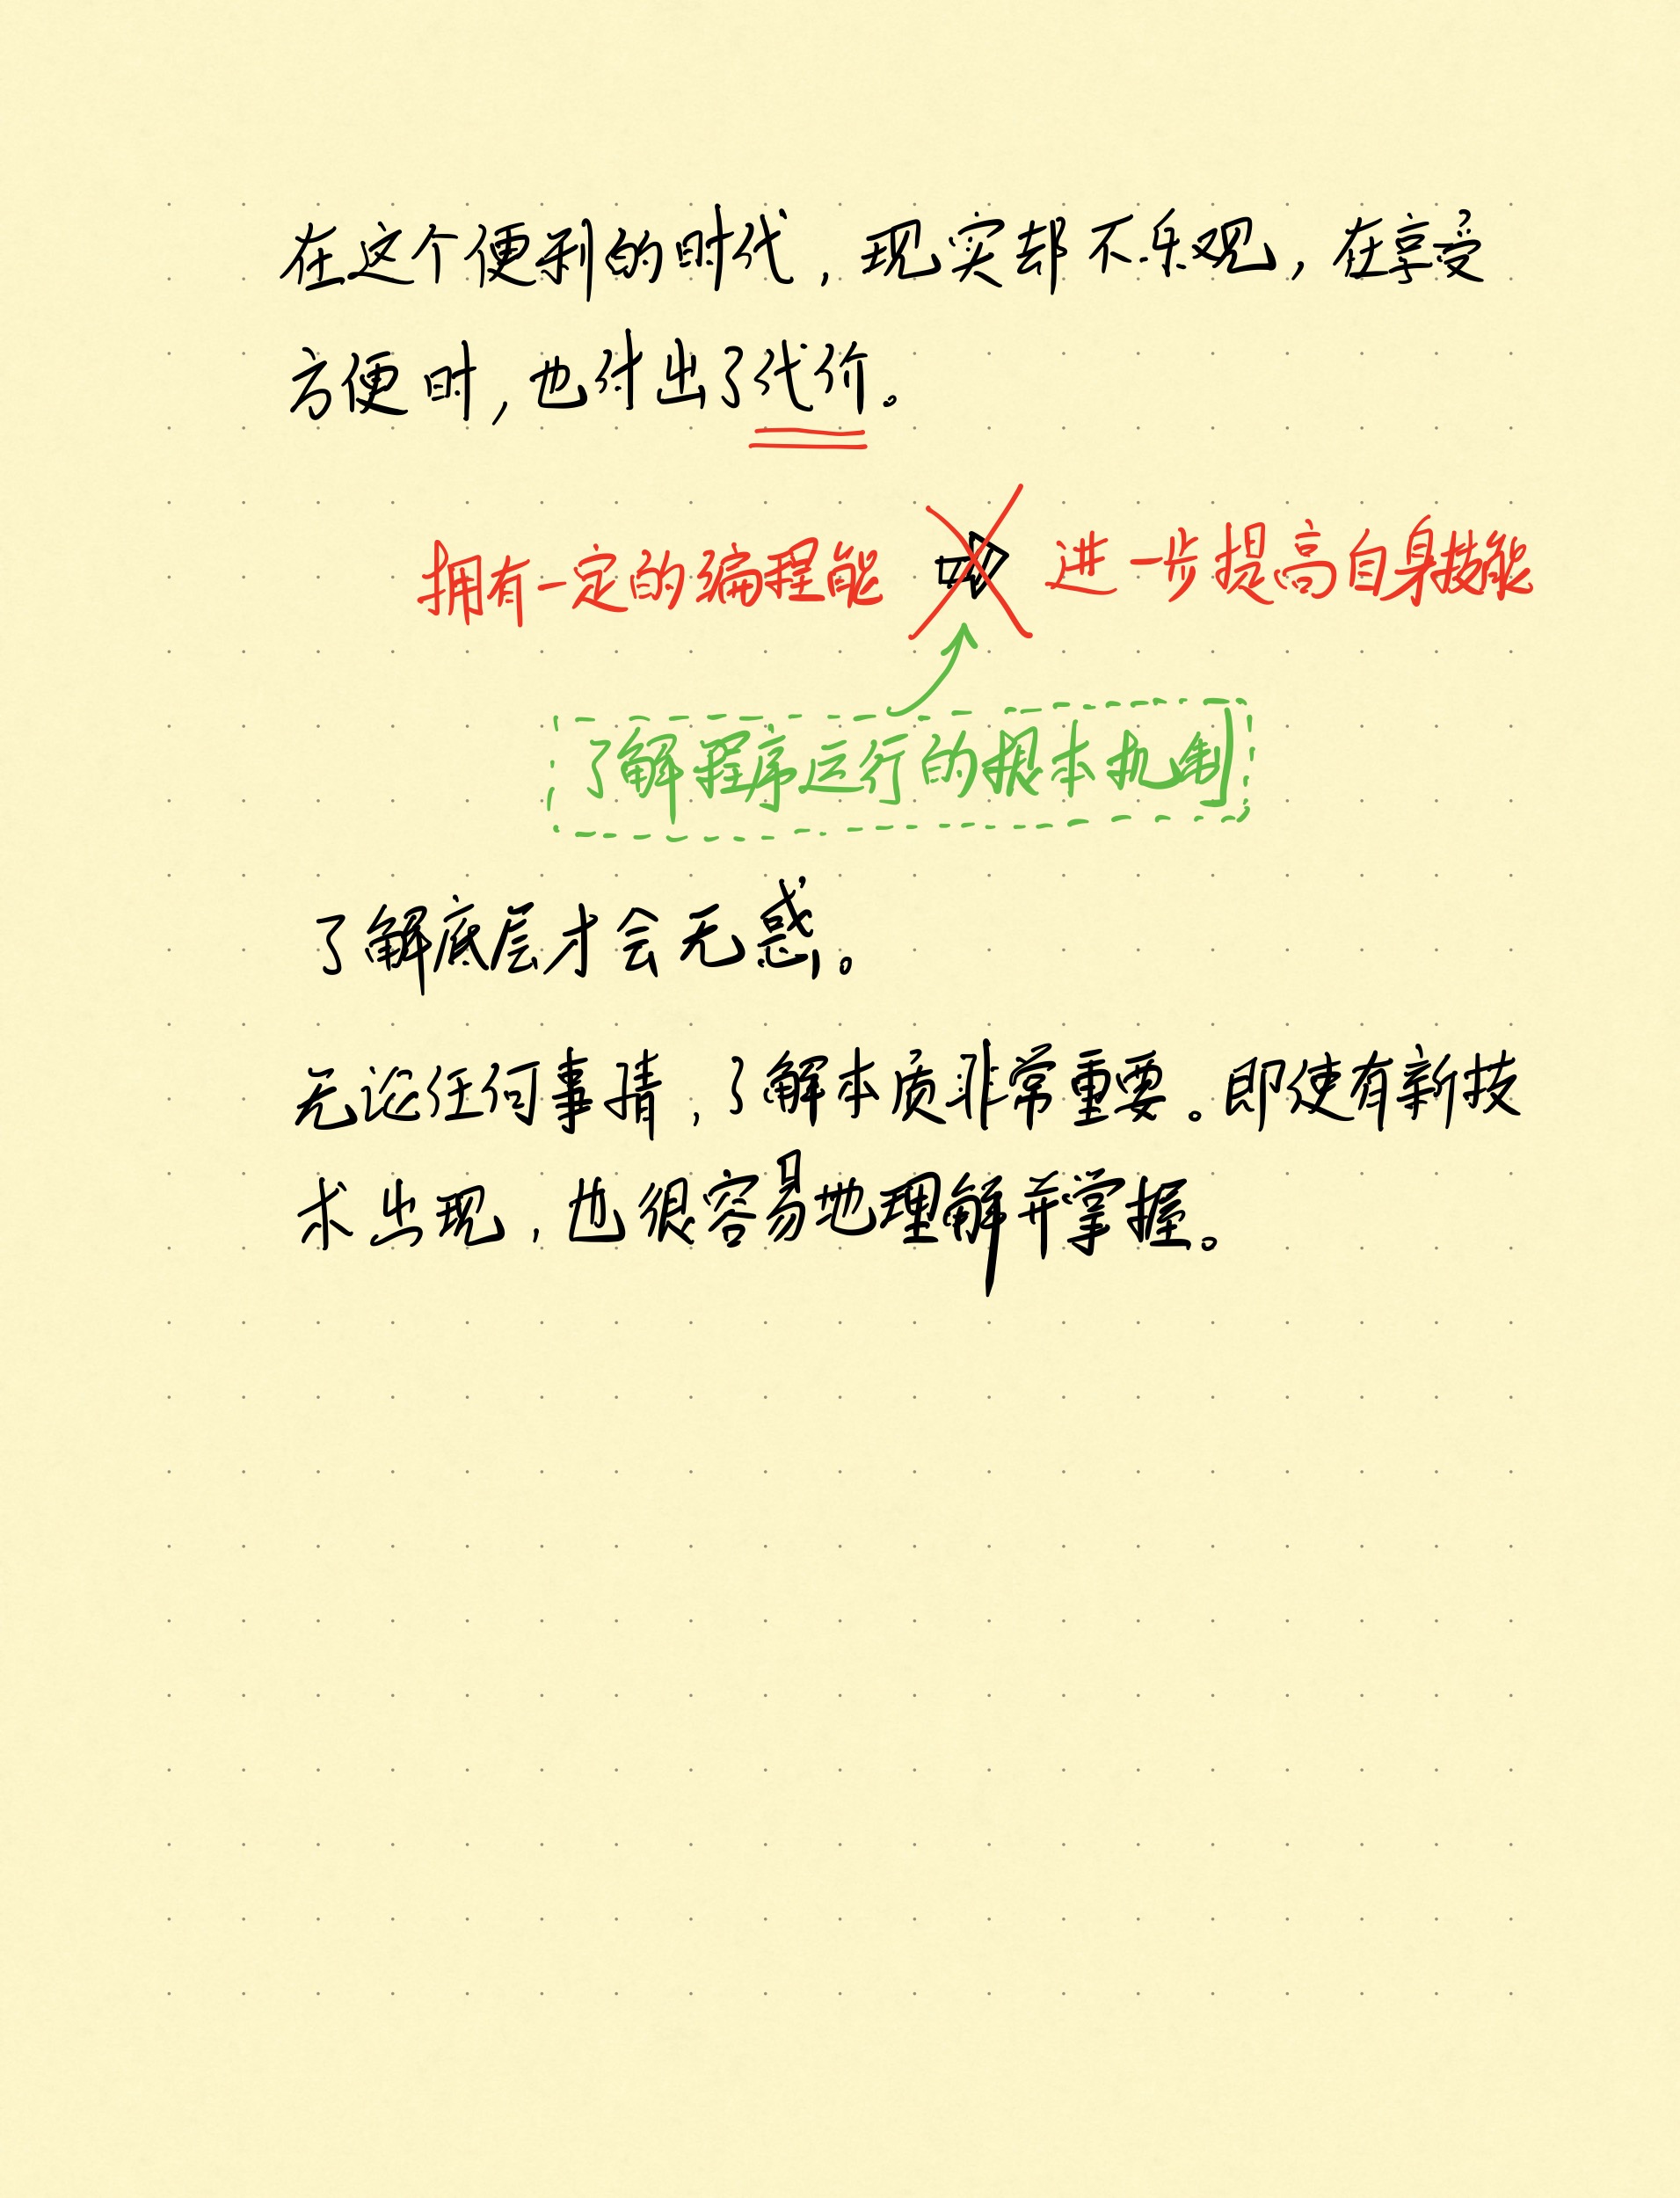 在这个便利的时代，现实却不乐观，在享受
方便时，也付出了代价。
拥有一定的编程能 进一步提高自身技能
了解程序运行的根本机制
了解底层才会无惑。
无论任何事情，了解本质非常重要。即使有新技
术出现，也很容易地理解并掌握。